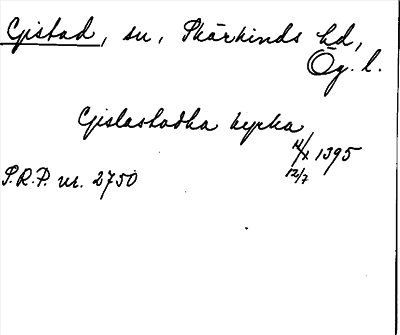 Gistad, sn, Skärkinds hd,
Ög. l.
Gislastadha kyrka
12/7 1395
S.R.P. nr. 2750